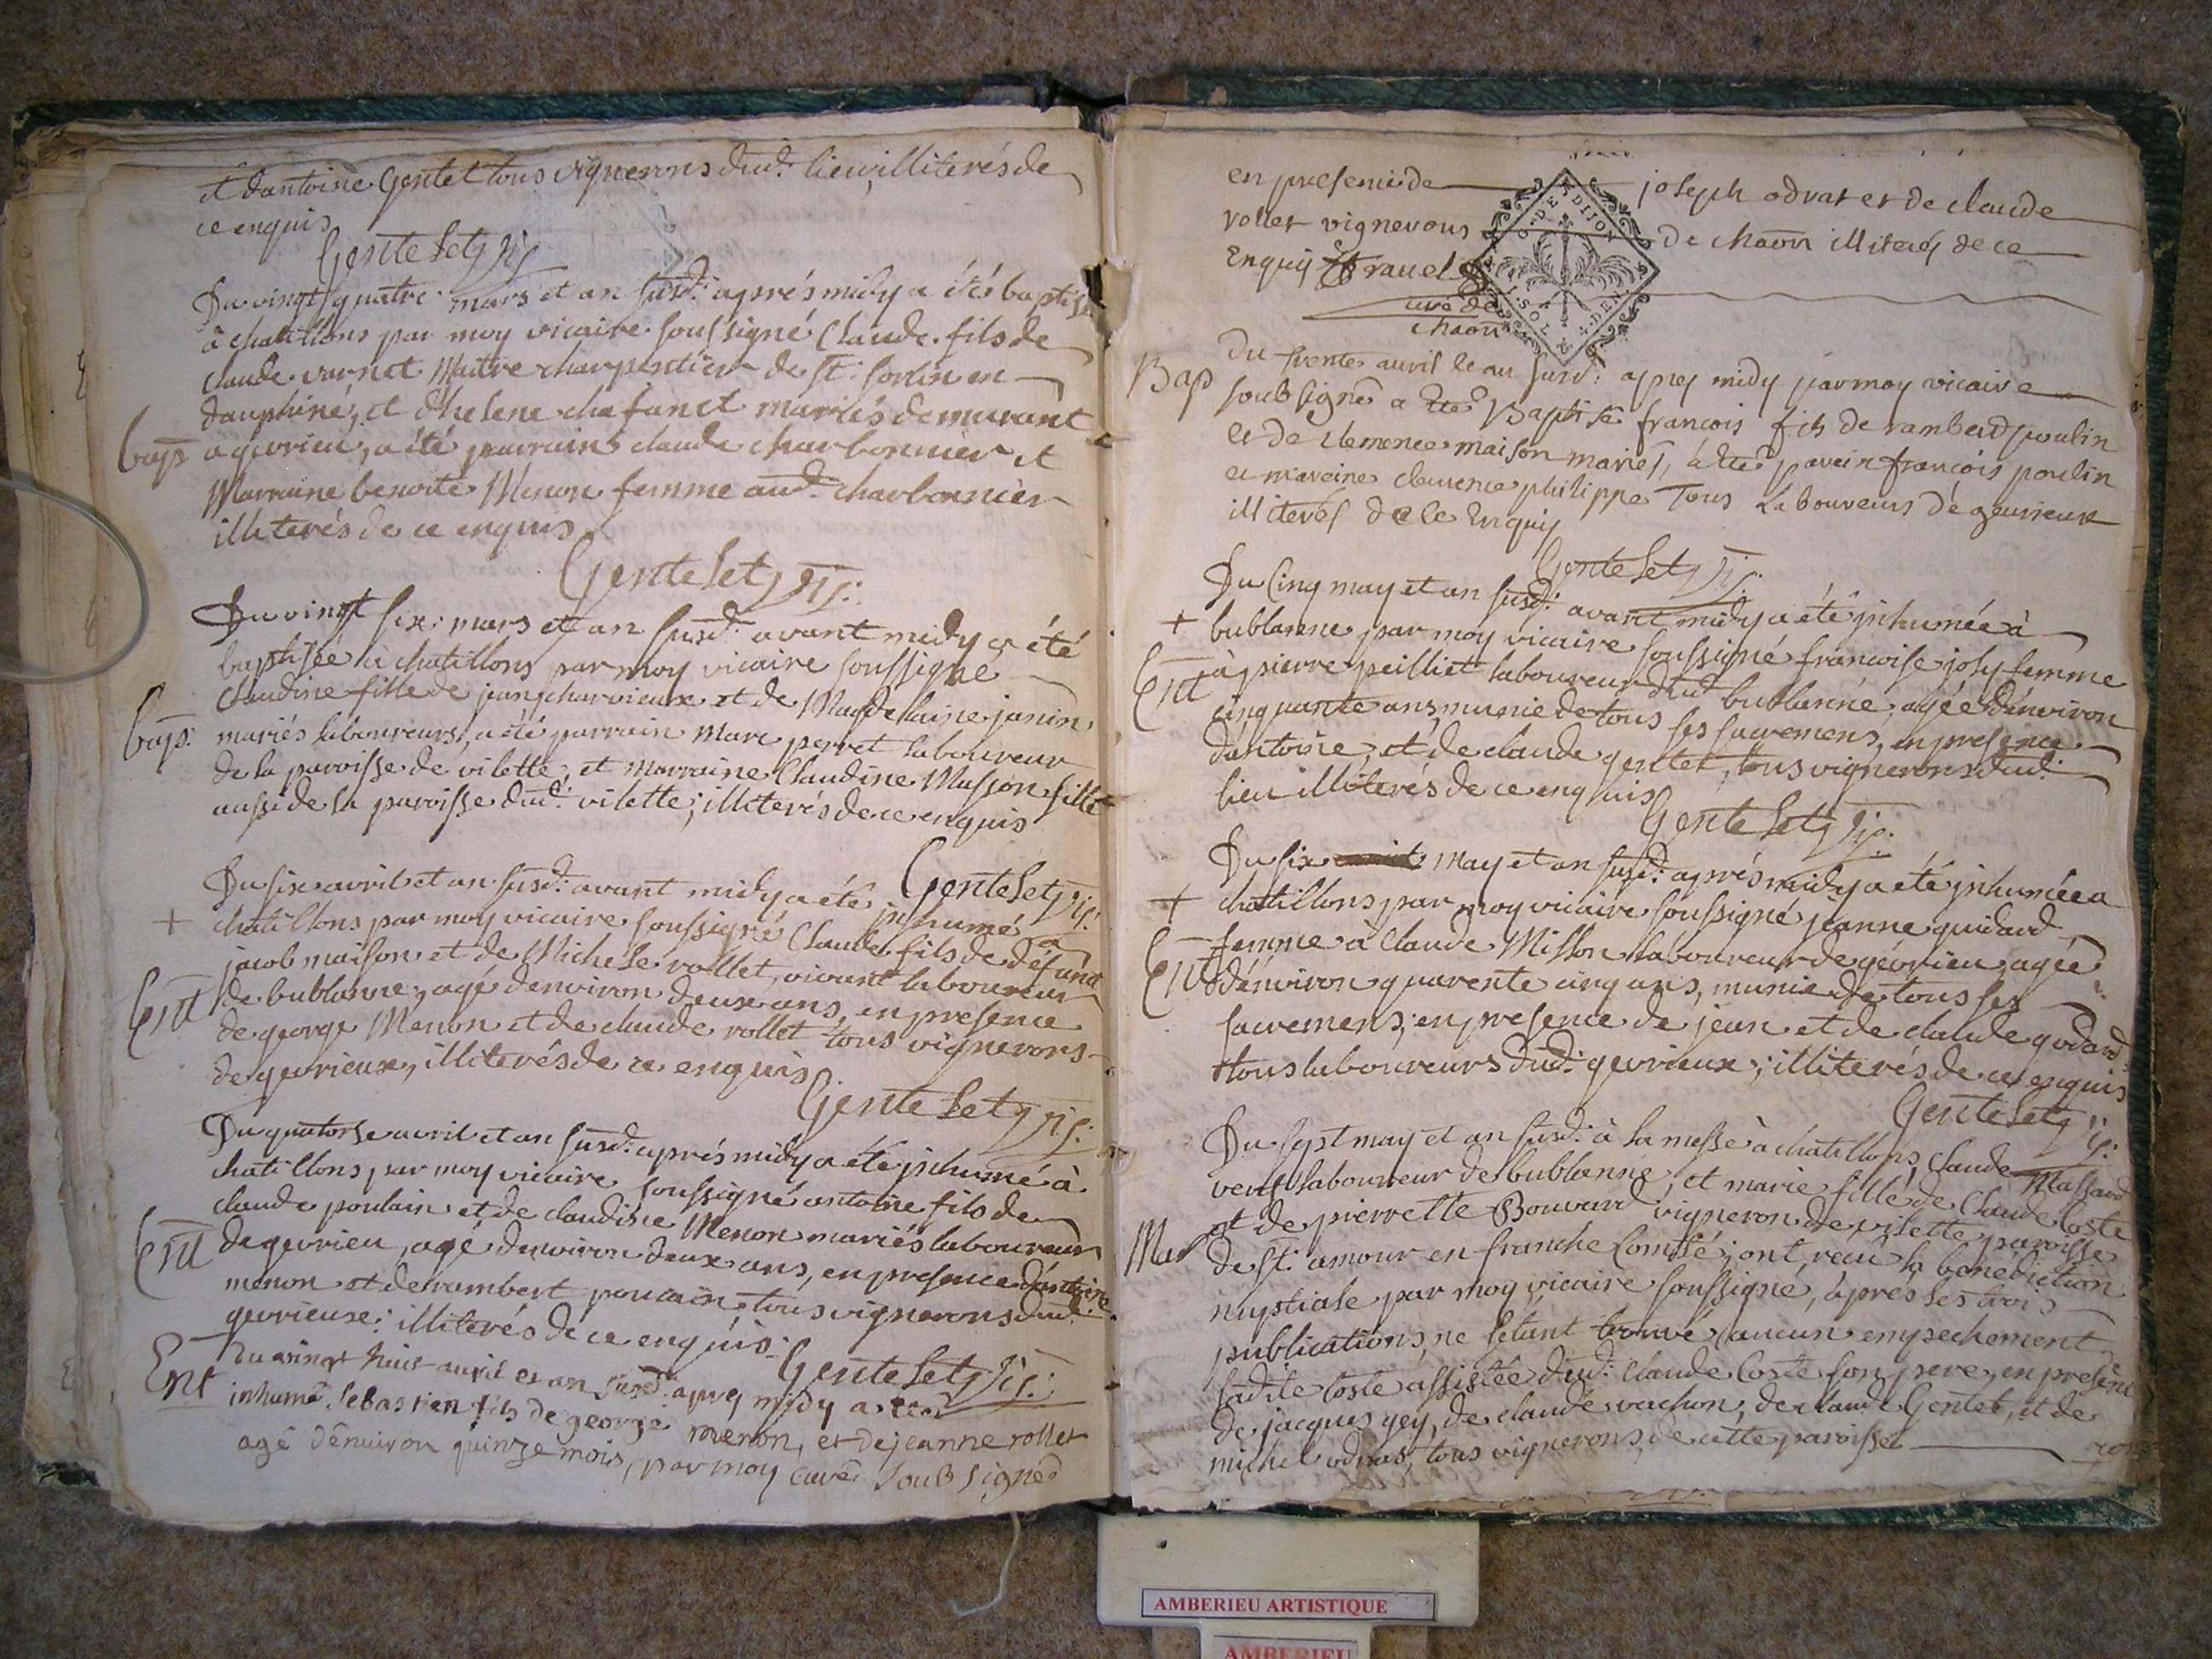 et dantoine Gentet tous vignerons dud: lieu, illiterés de
ce enquis
Gentelet vis
Du vingt quatre mars et an susd: aprés midy a étés baptisé
à chatillons par moy vicaire soussigné Claude fils de
claude varnet Maitre charpentier de st: sorlin en
dauphiné, et dhelene chafanet mariés demurant
bap
a gevrieu, a été parrain claude charbonnier et
Marraine benoite Menon femme aud: charbonnier
illiterés de ce enquis
Gentelet vis:
Du vingt six mars et an susd: avant midy a été
baptisée à chatillons par moy vicaire soussigné
Claudine fille de jean charvieux et de Magdelaine janin
bap:
mariés laboureurs, a été parrain marc perret laboureur
de la paroisse de vilette, et marraine Claudine Masson fille
aussi de la paroisse dud: vilette; illiterés de ce enquis
Gentelet vis:
Du six avril et an susd: avant midy a été inhumé a
+ chatillons par moy vicaire soussigné Claude fils de défunt
jacob maison et de Michele rollet, vivant laboureur
Ent
de bublanne, agé denviron deux ans, en presence
de george Menon et de claude rollet tous vignerons
de gevrieux, illiterés de ce enquis
Gentelet vis:
Du quatorse avril et an susd: aprés midy a été inhumé à
chatillons par moy vicaire soussigné antoine fils de
claude poulain et de claudine Menon mariés laboureurs
Ent
de gevrieu, agé denviron deux ans, en presence dantoine
menon et de rambert poulain tous vignerons dud:
gevrieux: illiterés de ce enquis:
Gentelet vis:
Ent
Du vingt huit avril et an susd: apres midy a été
inhumé Sebastien fils de george menon, et de jeanne rollet
agé dénviron quinze mois, par moy curé soubsigné
en presence de joseph odvat et de claude
rollet vignerons de chaon illiterés de ce
Enquis
curé de
chaon
G. DE DIJON
1. SOL 4. DEN.
Bap
du trente avril le an susd: apres midy par moy vicaire
soubsigné a été Baptisé francois fils de ramberd poulin
et de clemence maison mariés, a été parein francois poulin
et mareine clemence philippe Tous Laboureurs de gevrieux
illiterés de ce Enquis
Gentelet vis:
Du cinq may et an susd: avant midy a été inhumée à
+ bublanne par moy vicaire soussigné francoise joly femme
Ent
à pierre peilliet laboureur dud: bublanne, agée dénviron
cinquante ans, munie de tous ses sacremens, en presence
dantoine, et de claude gentet, tous vignerons dud:
lieu illiterés de ce enquis
Gentelet vis:
Du six may et an susd: aprés midy a été inhumée a
+ chatillons par moy vicaire soussigné jeanne guidard
femme à Claude Misson laboureur de gévrieu, agée
Ent
dénviron quarente cinq ans, munie de tous ses
sacremens, en presence de jean et de claude godard
tous laboureurs dud: gevrieux; illiterés de ce enquis
Gentelet vis:
Du sept may et an susd: à la messe à chatillons, Claude Massard
veuf laboureur de bublanne, et marie fille de Claude Coste
et de pierrette Bouvard vigneron de vilette paroisse
Mar
de st: amour en franche Comté; ont recu la benediction
nuptiale par moy vicaire soussigné, àprés les trois
publications, ne sétant trouvé aucun empechement
ladite Coste assistée dud: claude Coste son pere, en presence
de jacques gey, de claude vachon, de claude Gentet, et de
michel odvas, tous vignerons de cette paroisse
AMBERIEU ARTISTIQUE
AMBERIEU